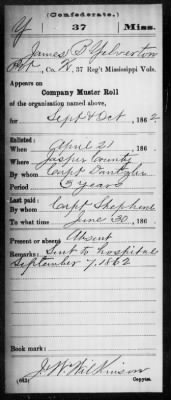 (Confederate.)
Y 37 Miss.
James B Yelverton
Pvt, Co. K, 37 Reg't Mississippi Vols.
Appears on
Company Muster Roll
of the organization named above,
for Sept & Oct, 1862.
Enlisted:
When April 21, 186
Where Jasper County
By whom Capt Dantzler
Period 3 years
Last paid:
By whom Capt Shepherd
To what time June 30, 186
Present or absent Absent
Remarks: Sent to hospital
September 7, 1862
Book mark:
J. W. Wilkinson
(642) Copyist.